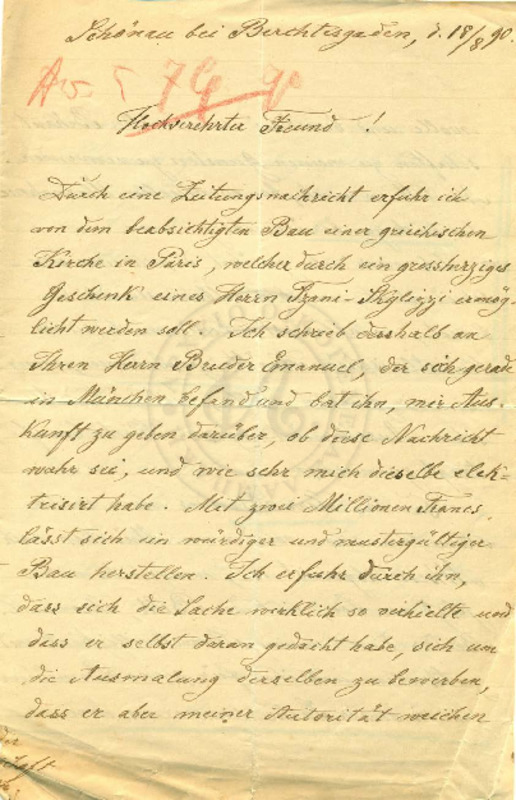 Schönau bei Berchtesgaden, d. 18/8 90.
Hochverehrter Freund !
Durch eine Zeitungsnachricht erfuhr ich
von dem beabsichtigten Bau einer griechischen
Kirche in Paris, welcher durch ein grossherziges
Geschenk eines Herrn Tzani-Skylizzi ermög-
licht werden soll. Ich schrieb desshalb an
Ihren Herrn Bruder Emanuel, der sich gerade
in München befand und bat ihn, mir Aus-
kunft zu geben darüber, ob diese Nachricht
wahr sei, und wie sehr mich dieselbe elek-
trisirt habe. Mit zwei Millionen Francs
lässt sich ein würdiger und mustergültiger
Bau herstellen. Ich erfuhr durch ihn,
dass sich die Sache wirklich so verhielte und
dass er selbst daran gedacht habe, sich um
die Ausmalung derselben zu bewerben,
dass er aber meiner Autorität weichen